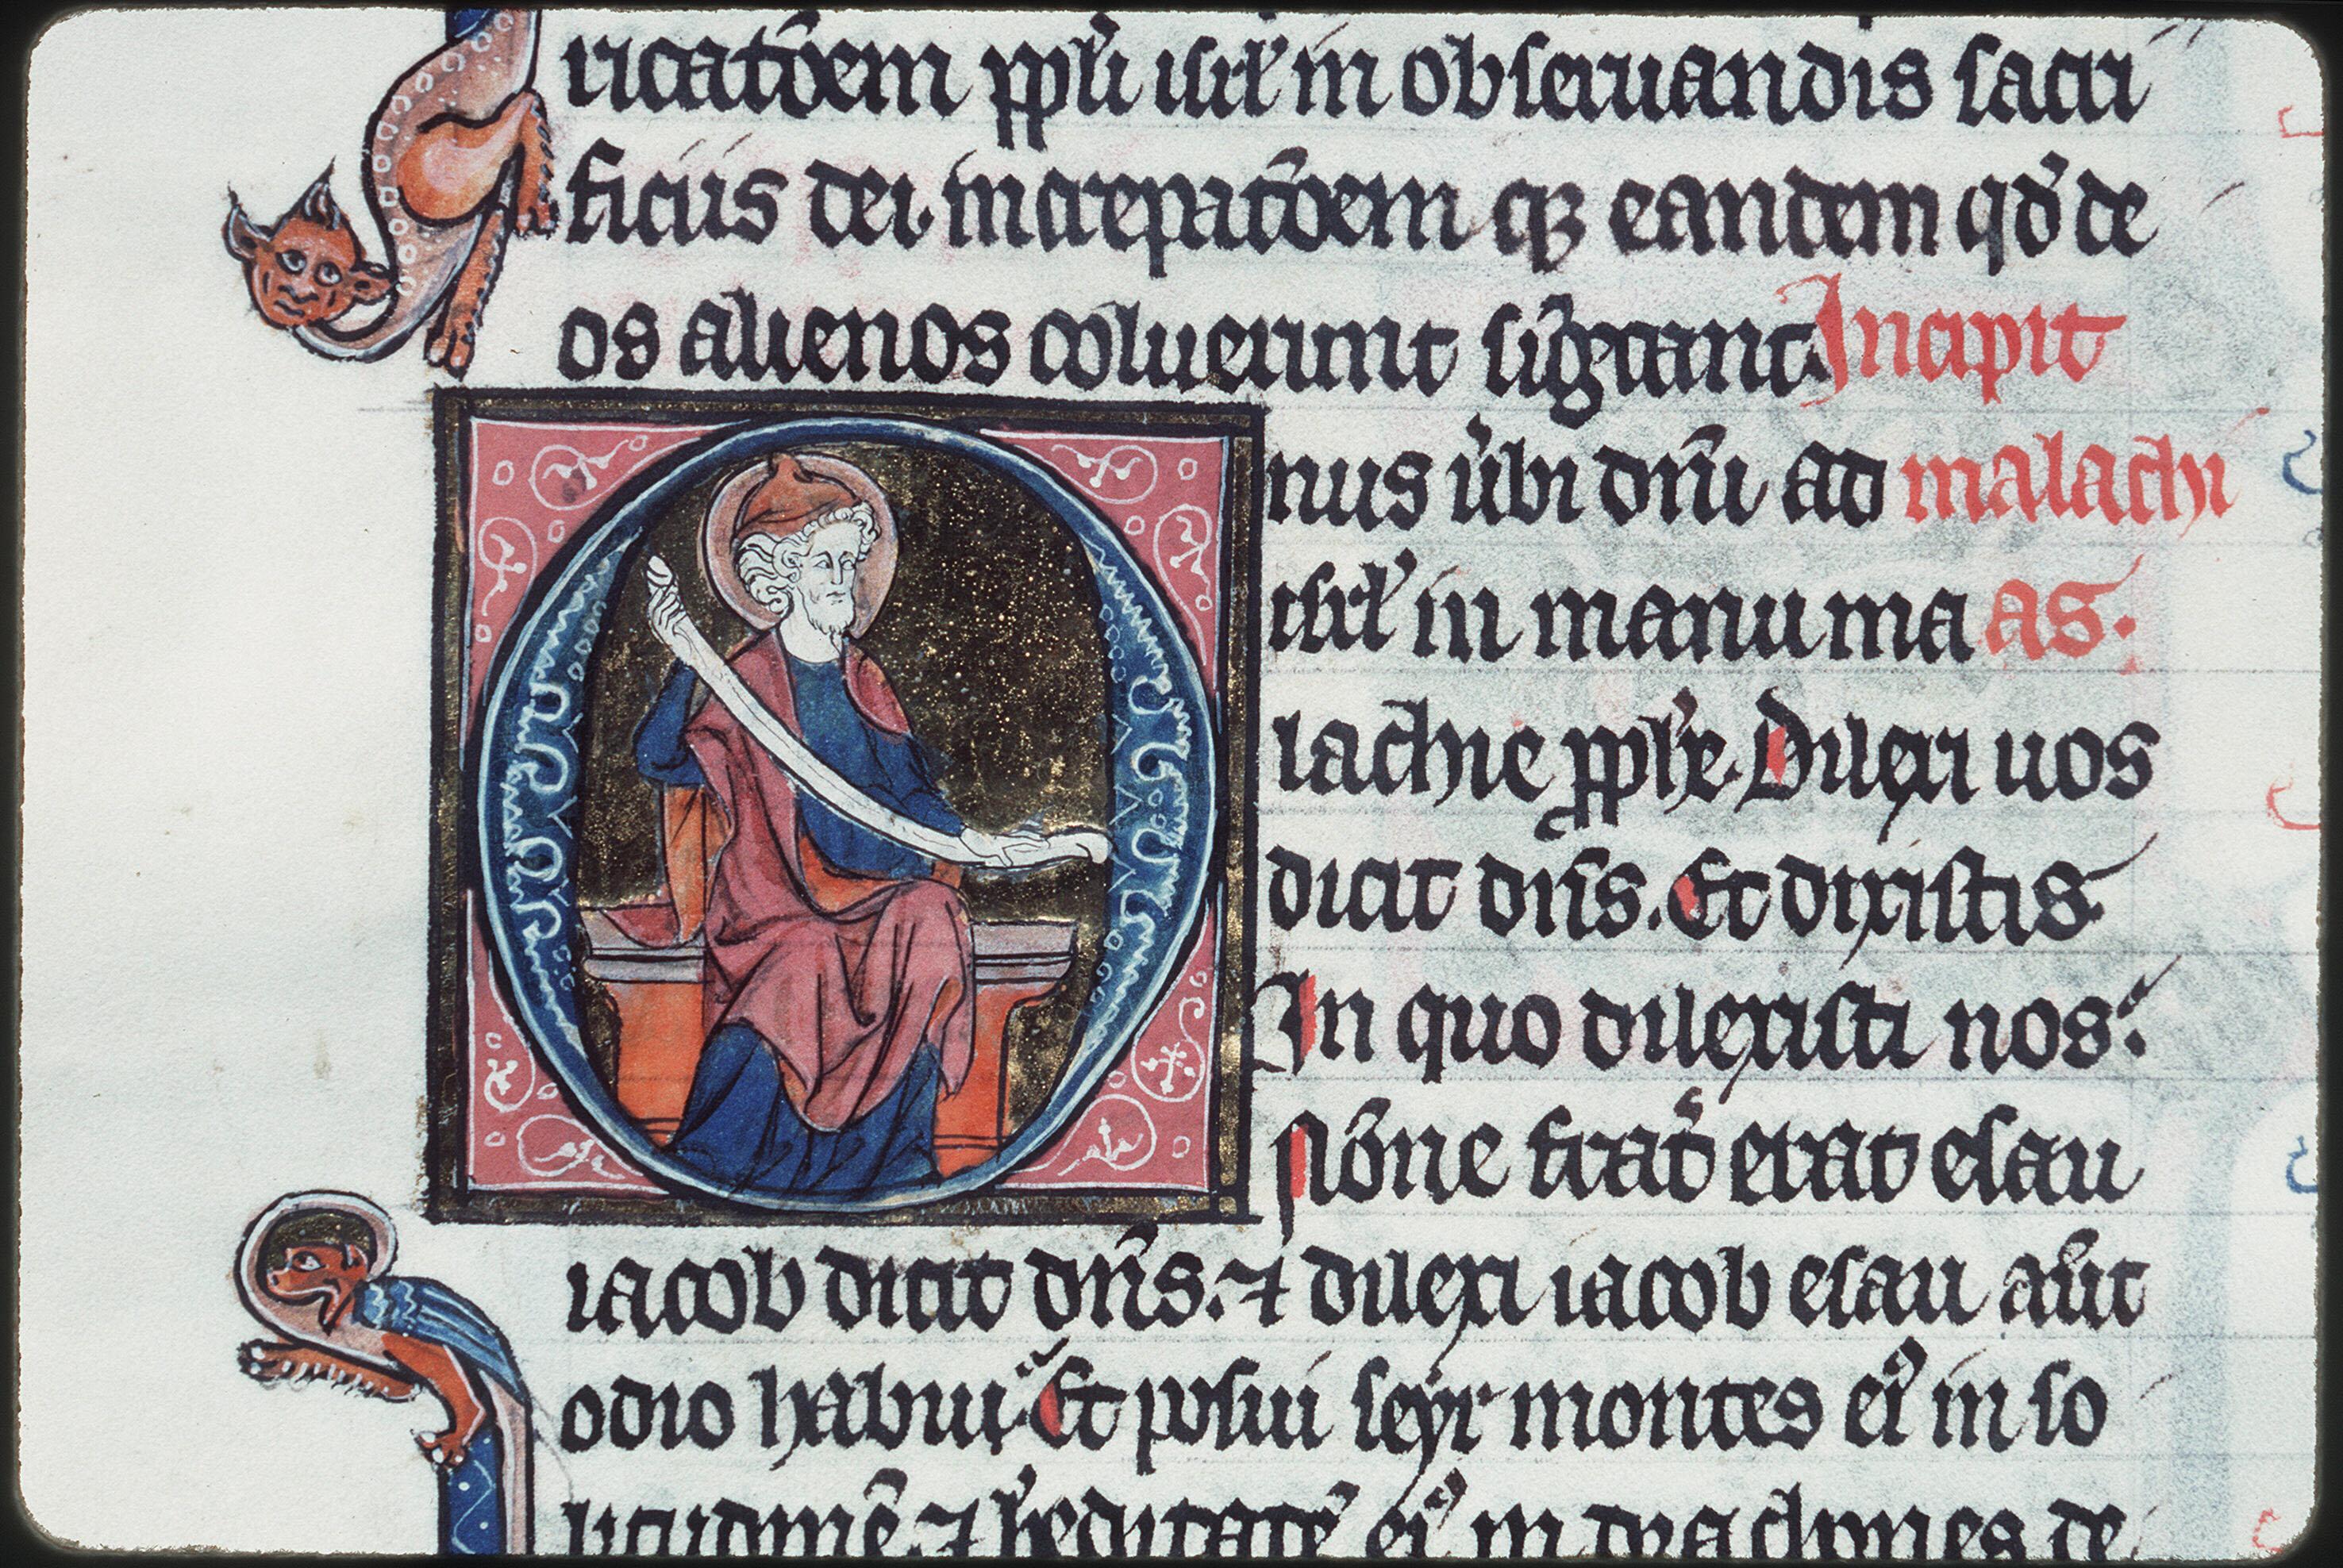 ricatōem ppl̄i isrl̄ in obseruandis sacri
ficiis dei. increpatōem qꝫ eandem qd̄ de
os alienos coluerunt sig̃tant. Incipit
nus ũbi dn̄i ad malachi
isrl̄ in manu ma as.
lachie pph̄e. Dilexi uos
dicit dn̄s. Et dixistis
In quo dilexisti nos.
Nōne frat̄ erat esau
iacob dicit dn̄s. ⁊ dilexi iacob esau aūt
odio habui. Et posui seyr montes eiꝰ in so
litudinē ⁊ h̄editatē eiꝰ in drachones de